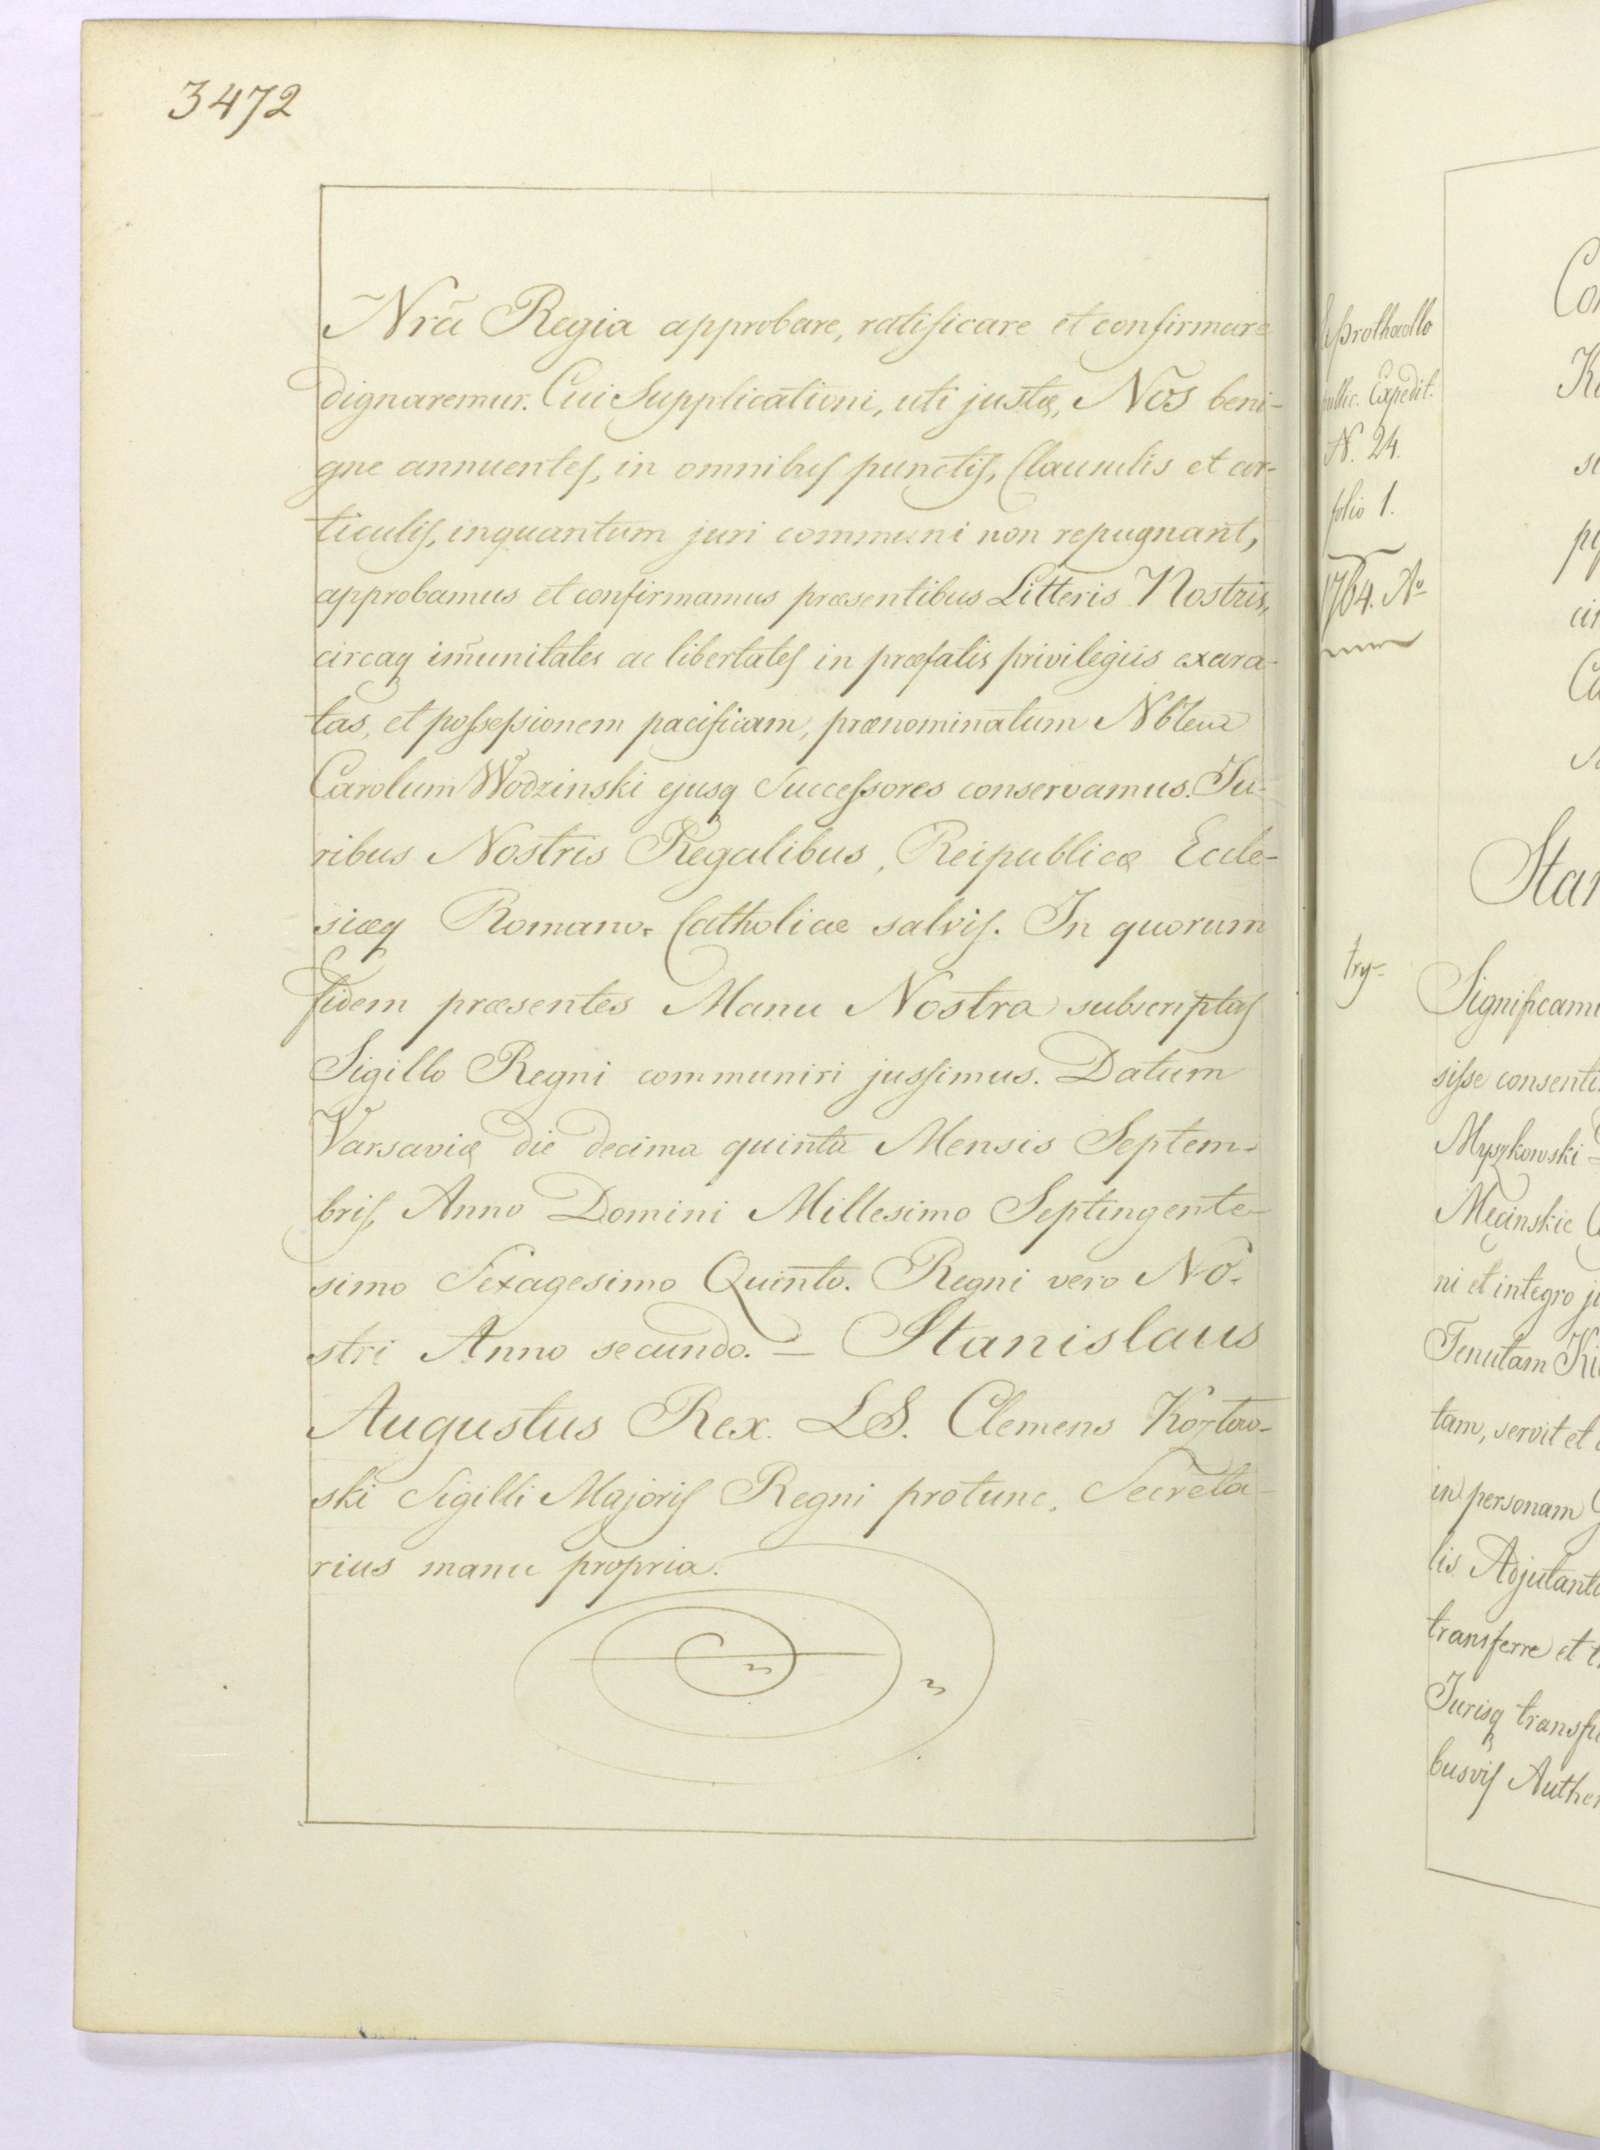 3472
Nrã Regia approbare, ratificare et confirmare
dignaremur. Cui Supplicationi, uti justæ, Nos beni-
gne annuentes, in omnibus punctis, Clausulis et ar-
ticulis, inquantum juri communi non repugnant,
approbamus et confirmamus præsentibus Litteris Nostris,
circaq im̃unitates ac libertates in præfatis privilegiis exara-
tas, et possessionem pacificam, prænominatum Nblem
Carolum Wodzinski ejusq Successores conservamus. Ju-
ribus Nostris Regalibus, Reipublicæ Eccle-
siæq Romano-Catholicæ salvis. In quorum
fidem præsentes Manu Nostra subscriptas
Sigillo Regni communiri jussimus. Datum
Varsaviæ die decima quinta Mensis Septem-
bris, Anno Domini Millesimo Septingente-
simo Sexagesimo Quinto. Regni vero No-
stri Anno secundo. — Stanislaus
Augustus Rex. LS. Clemens Kozłow-
ski Sigilli Majoris Regni protunc. Secreta-
rius manu propria.
Expedit.
N. 24.
folio 1.
1764. Ao
try-
Significam
sisse consenti
Myszkowski
Męcinskie
ni et integro
Tenutam
tam, servit et
in personam
lis Adjutant
transferre et
Jurisq transf
busvis Authen